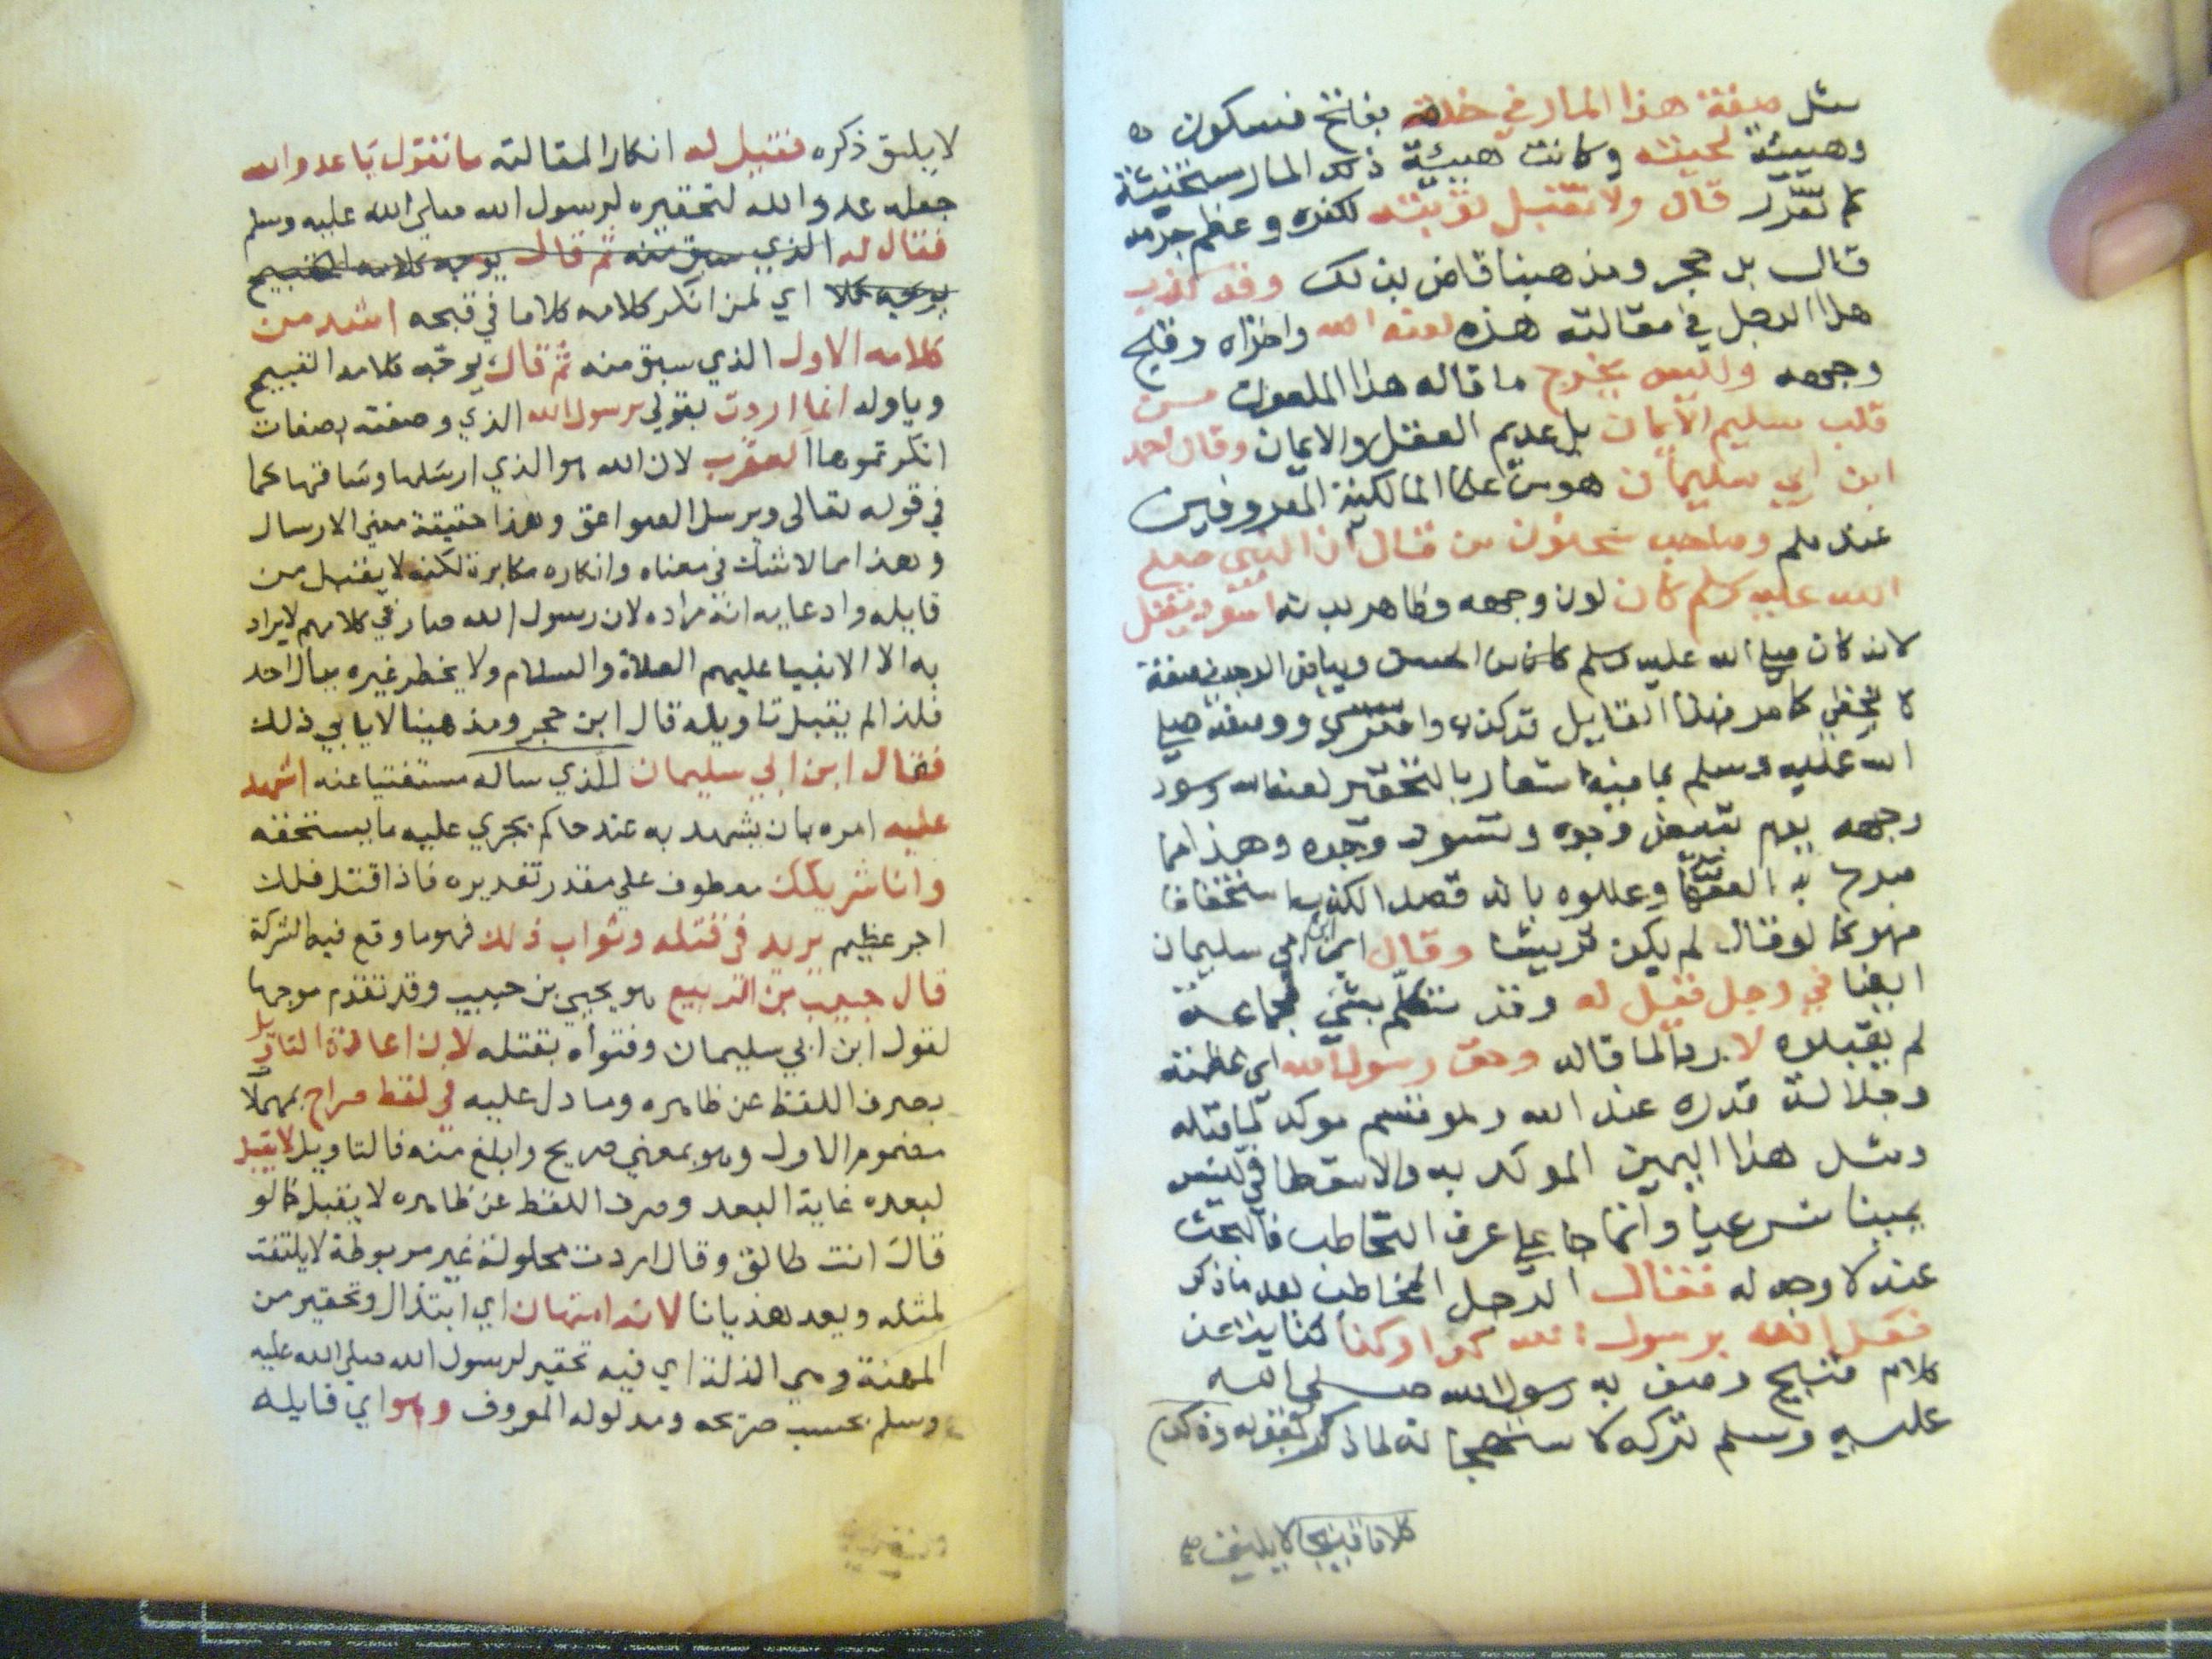 مثل صفة هذا المار في خلقه بفاتح فسكون
وهيئة لحيته وكانت هيئة ذلك المار مستخبثة
كما تقرر قال ولا تقبل توبته لكفره وعظم جرمه
قال بل حجر ومذهبنا قاض بذلك وقد كذب
هذا الرجل في مقالته هذه لعنه الله واخزاه وقبح
وجهه وليس يخرج ما قاله هذا الملعون من
قلب سليم الايمان بل عديم العقل والايمان وقال احمد
ابن ابي سليمان هو من علما المالكية المعروفين
عندهم وصاحب سحنون من قال ان النبي صلى
الله عليه وسلم كان لون وجهه وظاهر بدنه اسود يقتل
لانه كان صلى الله عليه وسلم كان من الحسن وبياض الوجه صفة
لا تخفى كما مر فهذا القايل تركذب وافترى ووصفه صلى
الله عليه وسلم بما فيه اشعار بالتحقير لعنه الله وسود
وجهه يوم تبيض وجوه وتسود وجوه وهذا مما
صرح به الفقها وعللوه بانه قصد الكذب استخفافا
فهو كما لو قال لم يكن قريشيا وقال ابن ابي سليمان
ايضا في رجل قيل له وقد تكلم بشي لجماعة
لم يقبلوه لا ردا لما قاله وحق رسول الله اي عظمته
وجلالة قدره عند الله وهو قسم موكد لما قبله
ومثل هذا اليمين الموكد به والاسقطافي ليس
يمينا شرعيا وانما جا على عرف التخاطب فالبحث
عنه لا وجه له فقال الرجل المخاطب بعد ما ذكر
فعل الله برسول الله كذا وكذا كناية عن
كلام قبيح وصف به رسول الله صلى الله
عليه وسلم تركه لاستهجانه لما ذكر بقوله وذكر
كلاما قبيحا لا يليق
لا يليق ذكره فقيل له انكارا لمقالته ما تقول يا عدو الله
جعله عدو الله لتحقيره لرسول الله صلى الله عليه وسلم
فقال له الذي سبق منه ثم قال يوجه كلامه القبيح
يوجه كلا اي لمن انكر كلامه كلاما في قبحه اشد من
كلامه الاول الذي سبق منه ثم قال يوجه كلامه القبيح
وياوله انما اردت بقولي برسول الله الذي وصفته بصفات
انكرتموها العقرب لان الله هو الذي ارسلها وساقها كما
في قوله تعالى ويرسل الصواعق وهذا حقيقة معنى الارسال
وهذا مما لا شك في معناه وانكاره مكابرة لكنه لا يقبل من
قايله وادعايه انه مراده لان رسول الله صار في كلامهم لا يراد
به الا الانبيا عليهم الصلاة والسلام ولا يخطر غيره ببال احد
فلذا لم يقبل تاويله قال ابن حجر ومذهبنا لا يابي ذلك
فقال ابن ابي سليمان للذي ساله مستفتيا عنه اشهد
عليه امره بان يشهد به عند حاكم يجري عليه ما يستحقه
وانا شريكك معطوف على مقدر تقديره فاذا قتل فلك
اجر عظيم يريد في قتله وثواب ذلك فهو ما وقع فيه الشركة
قال حبيب بن الربيع هو يحيى بن حبيب وقد تقدم موجها
لقول ابن ابي سليمان وفتواه بقتله لان ادعاة التاويل
بصرف اللفظ عن ظاهره وما دل عليه في لفظ صراح بمهملا
مضموم الاول وهو بمعني صريح وابلغ منه فالتاويل لا يقبل
لبعده غاية البعد وصرف اللفظ عن ظاهره لا يقبل كما لو
قال انت طالق وقال اردت محلولة غير مربوطة لا يلتفت
لمثله ويعد هذيانا لانه امتهان اي ابتذال وتحقير من
المهنة وهي الذلة اي فيه تحقير لرسول الله صلى الله عليه
وسلم بحسب صريحه ومدلوله المعروف وهو اي قايله